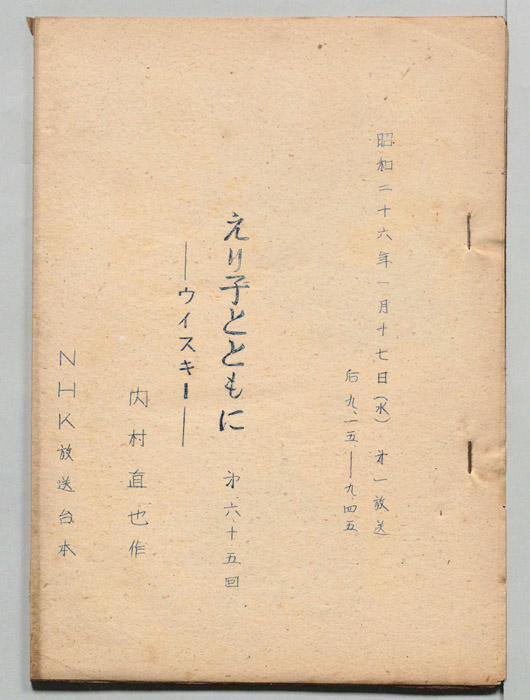 昭和二十六年一月十七日(水) 才一放送
后九、一五、―九、四五、
えり子とともに 才六十五回
―ウイスキー―
内村直也作
NHK放送台本